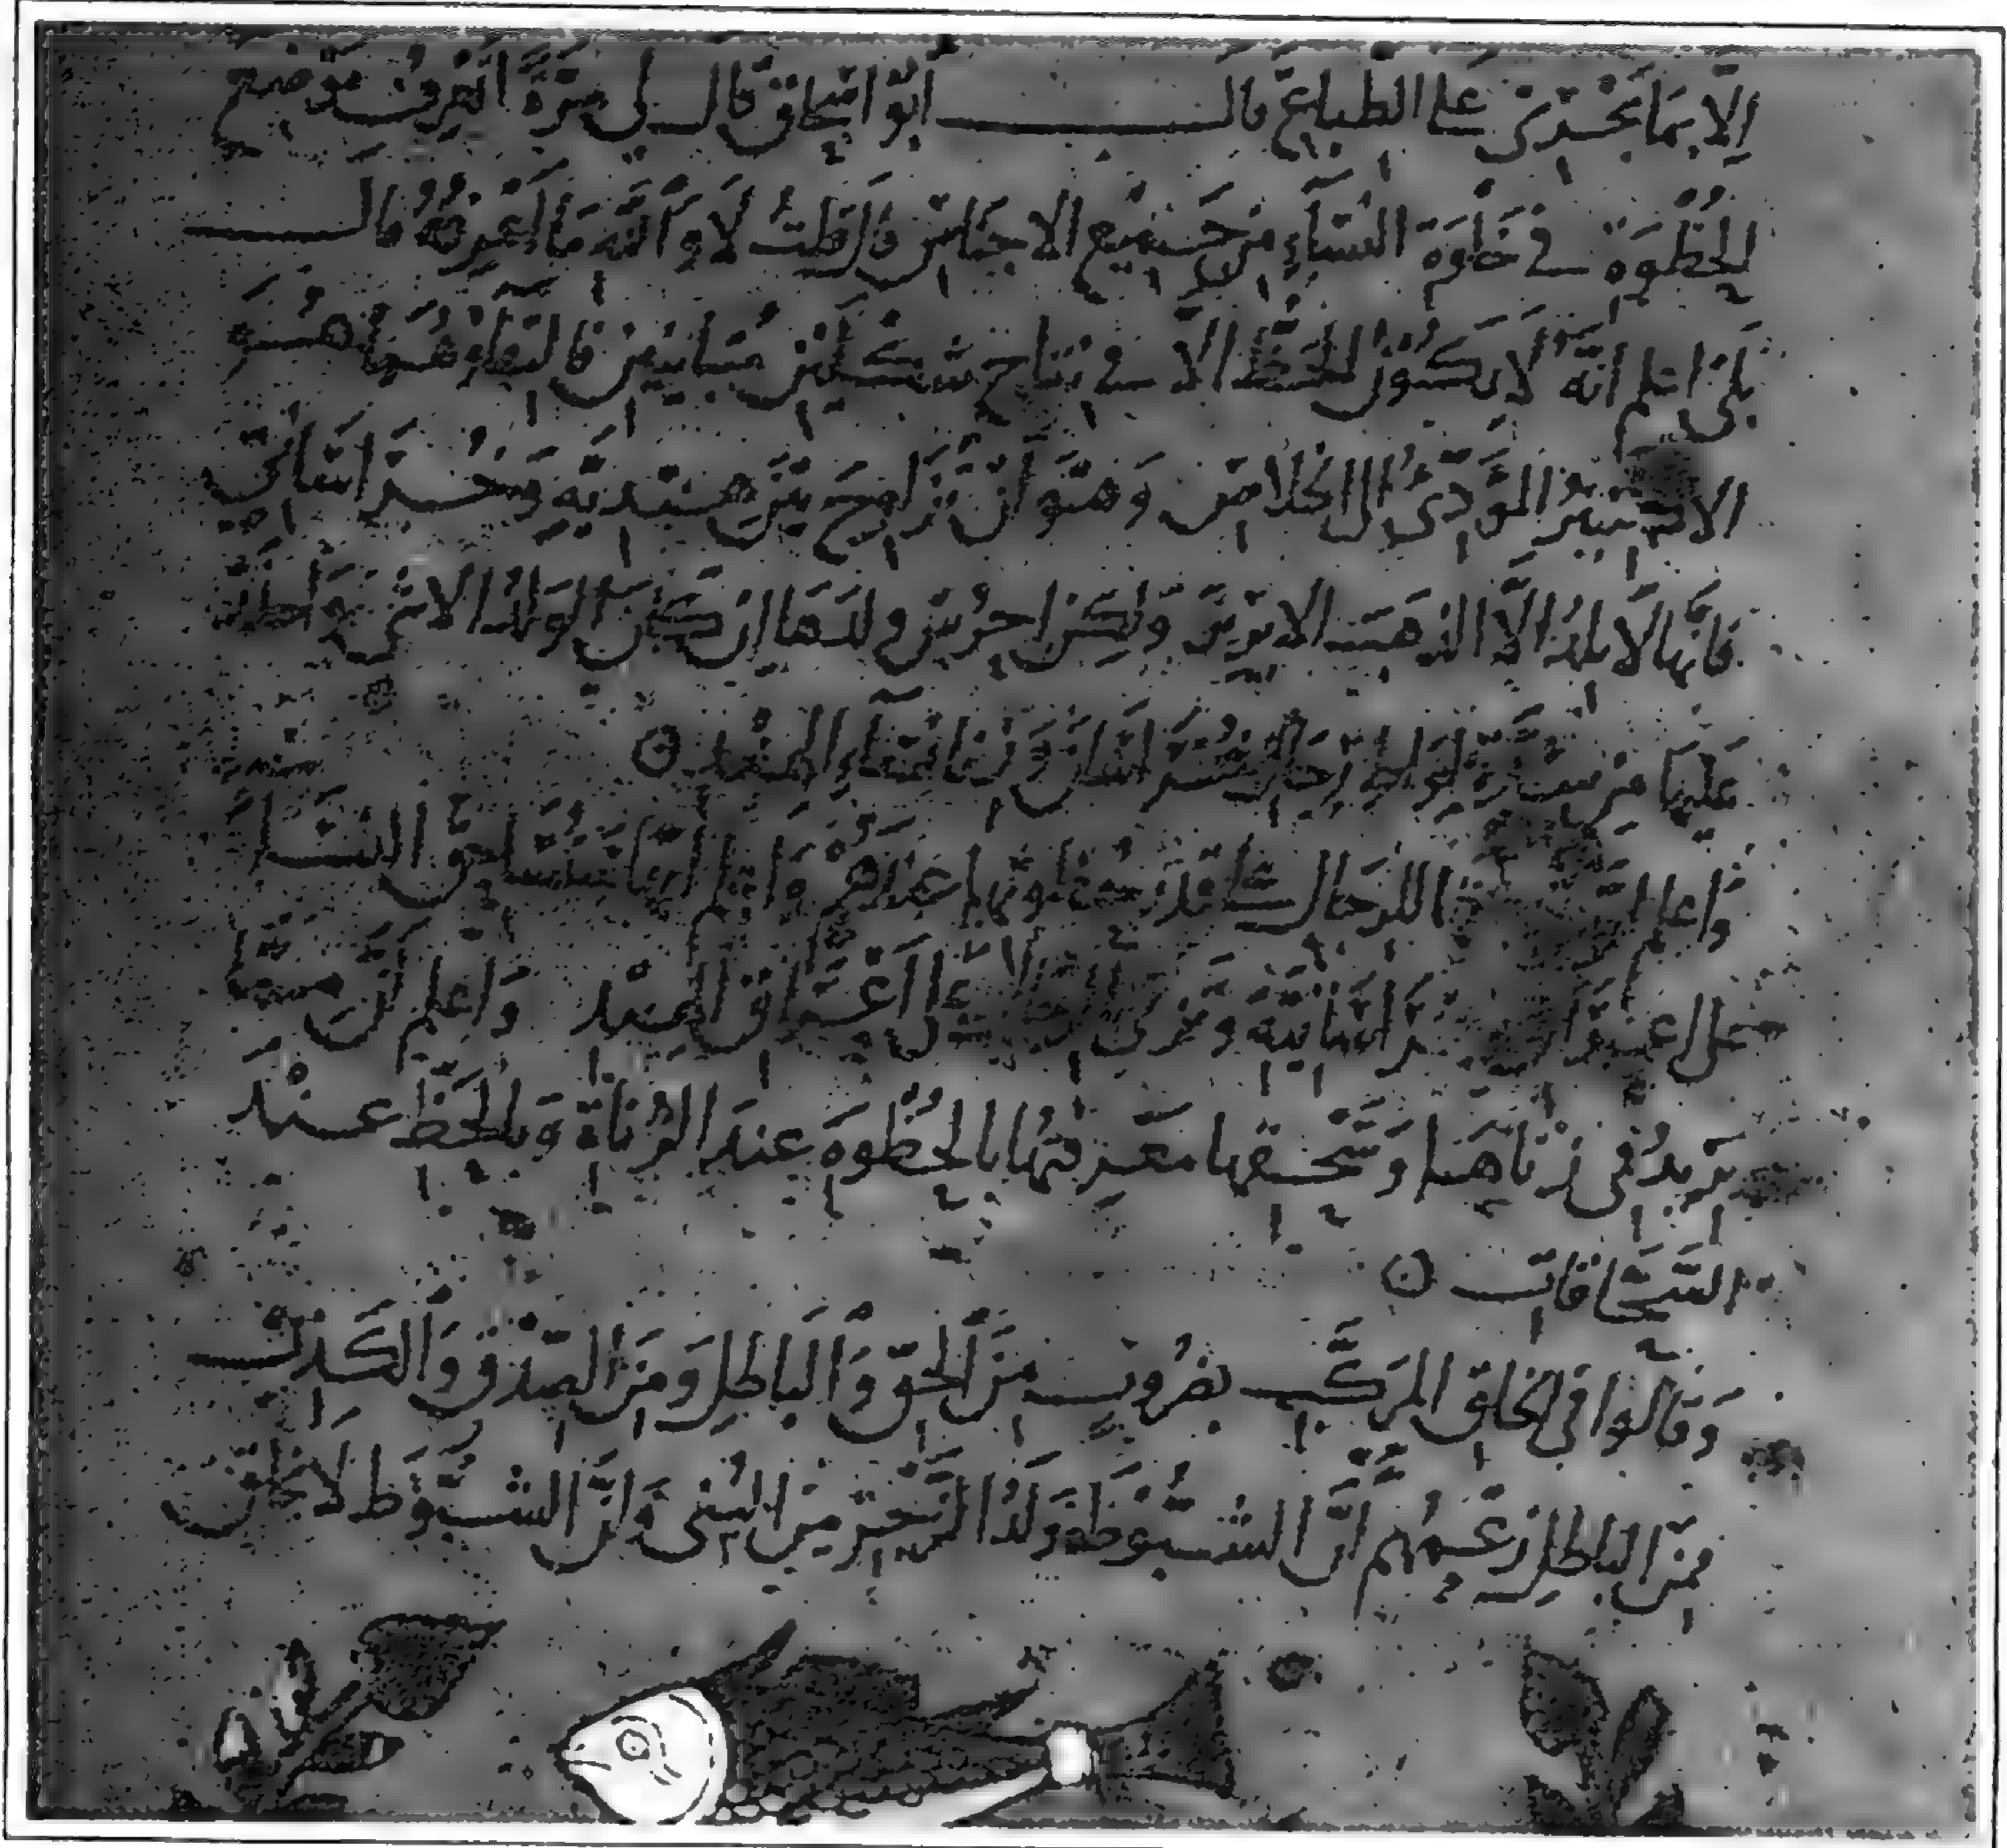 إلّا بما تجري على الطبائع قال أبو اسحاق قال لي مرّة اتعرف موضع
الحُظوة في خلوة النساء من جميع الاجناس قال قلت لا والله ما أعرفه قال
بلى اعلم انه لا يكون الحظّ الا في نتاج شكلين متباينين فالتقاؤهما هو
الاكسير المؤدّي الى الخلاص وهو أن تزاوج بين هندية وخراساني
فانها لا تلد الّا الذهب الابريز ولكن احرس ولدها ان كان الولد الانثى
عليها من شدة لواط رجال خراسان وزنا نساء الهند
واعلم للرجال على قدر حظوتها عندهم واعلم النساء
على على أعراق الهند واعلم ان ممّا
يزيد في زناها وسحقها معرفتها بالحُظوة عند الزناة وبالحظ عند
السحّاقات
وقالوا في الخلق المركّب ضروب من الحق والباطل ومن الصدق والكذب
فمن الباطل زعمهم أنّ الشبّوطة ولد الزجر من البنّي وانّ الشبّوط لا